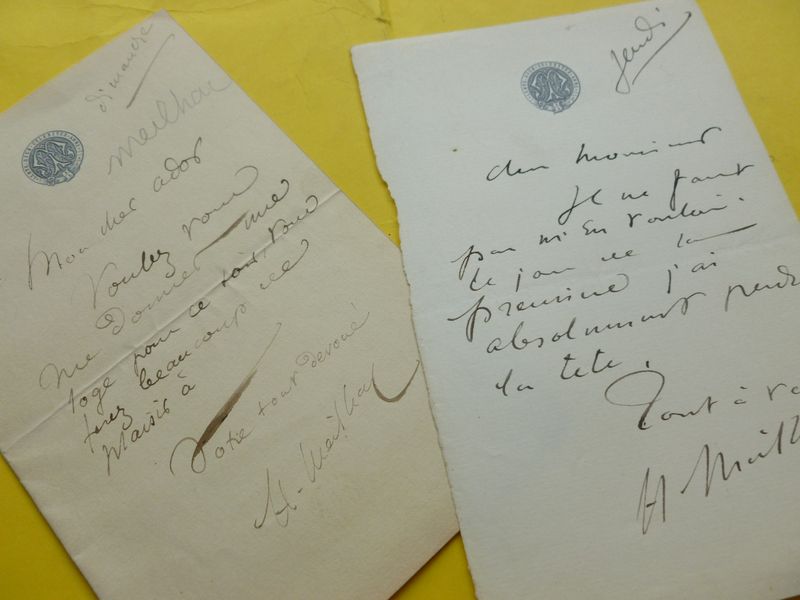 dimanche
Meilhac
Mon cher ador
Voulez vous
me donner une
loge pour ce soir. vous
ferez beaucoup de
plaisir à
Votre tout dévoué
H. Meilhac
Jeudi
cher monsieur
Il ne faut
pas m'en vouloir.
Le jour de la
première j'ai
absolument perdu
la tete.
Tout à vo
H. Meilh